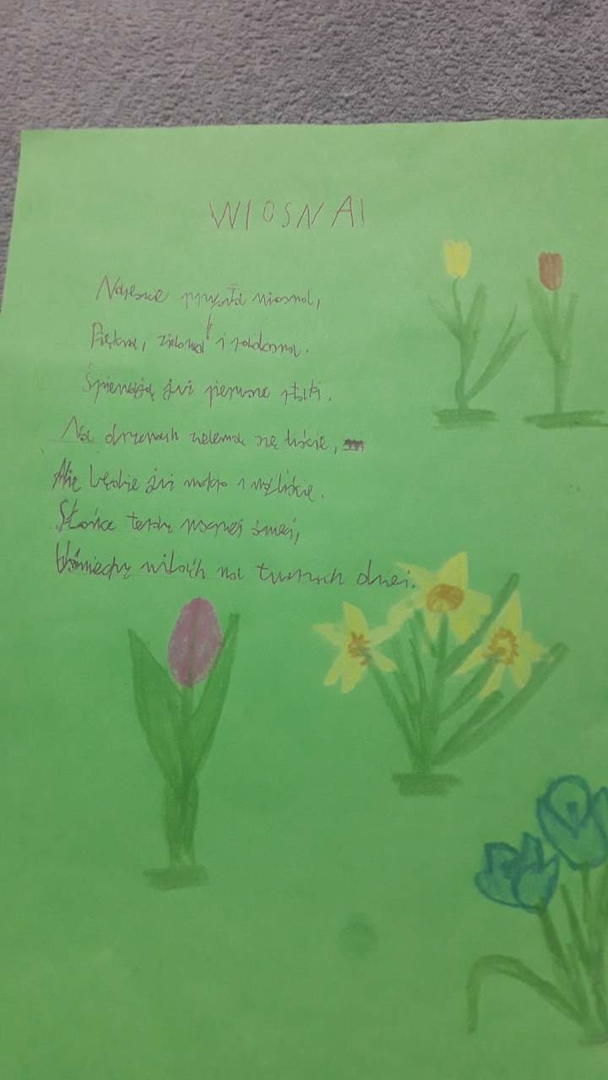 WIOSNA!
Nareszcie przyszła wiosna,
Piękna, zielona i radosna.
Śpiewają już pierwsze ptaki.
Na drzewach zielenią się liście,
będzie już mokro i
Słońce teraz mocniej
Uśmiechy na twarzach dzieci.